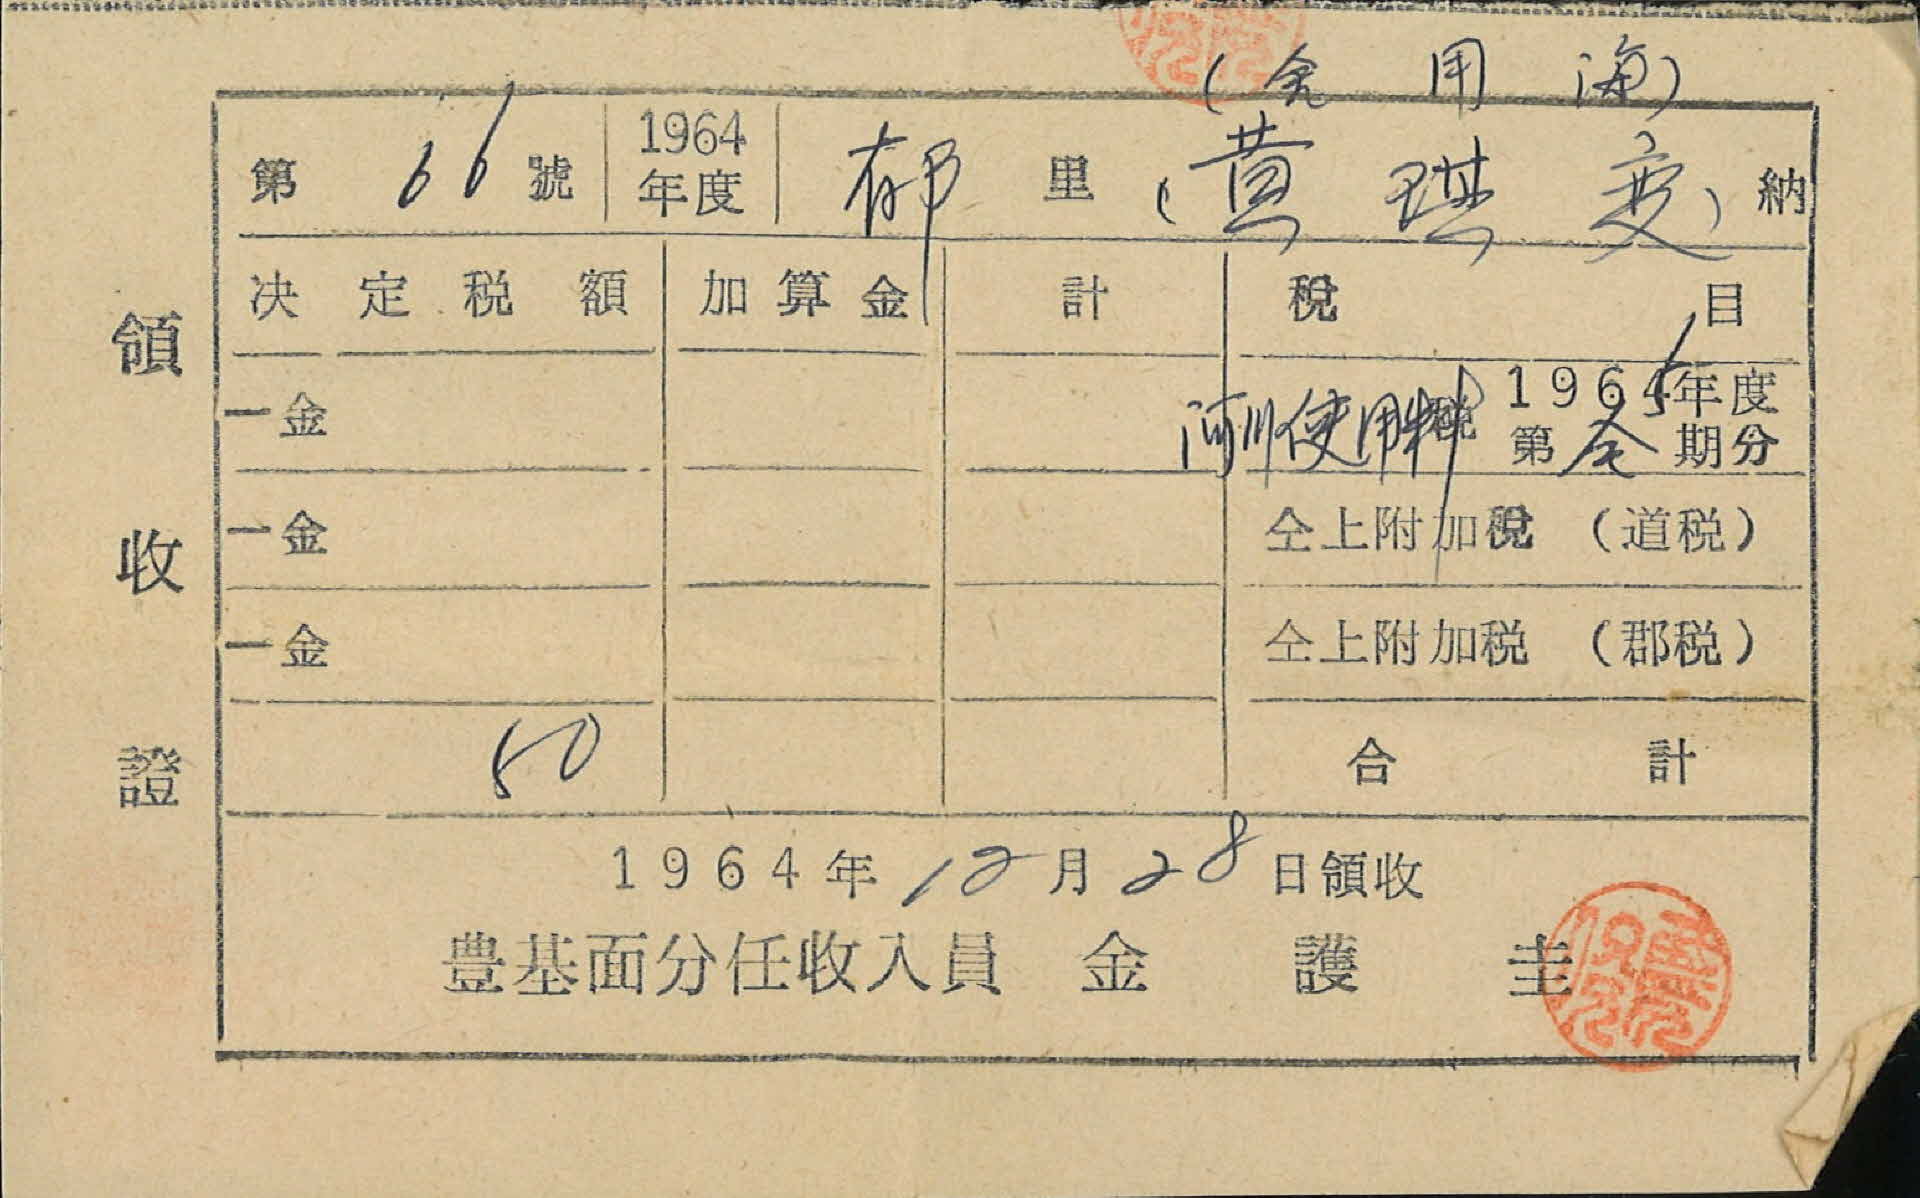 領收證
(金用海)
第 66 號 1964年度 郁 里 (黃琪 ) 納
決定税額 加算金 計 税目
一金 河川使用料 税 1964年度
第 全 期分
一金 仝上附加税 (道税)
一金 仝上附加税 (郡税)
50 合計
1964年12月28日領收
豊基面分任收入員 金護圭